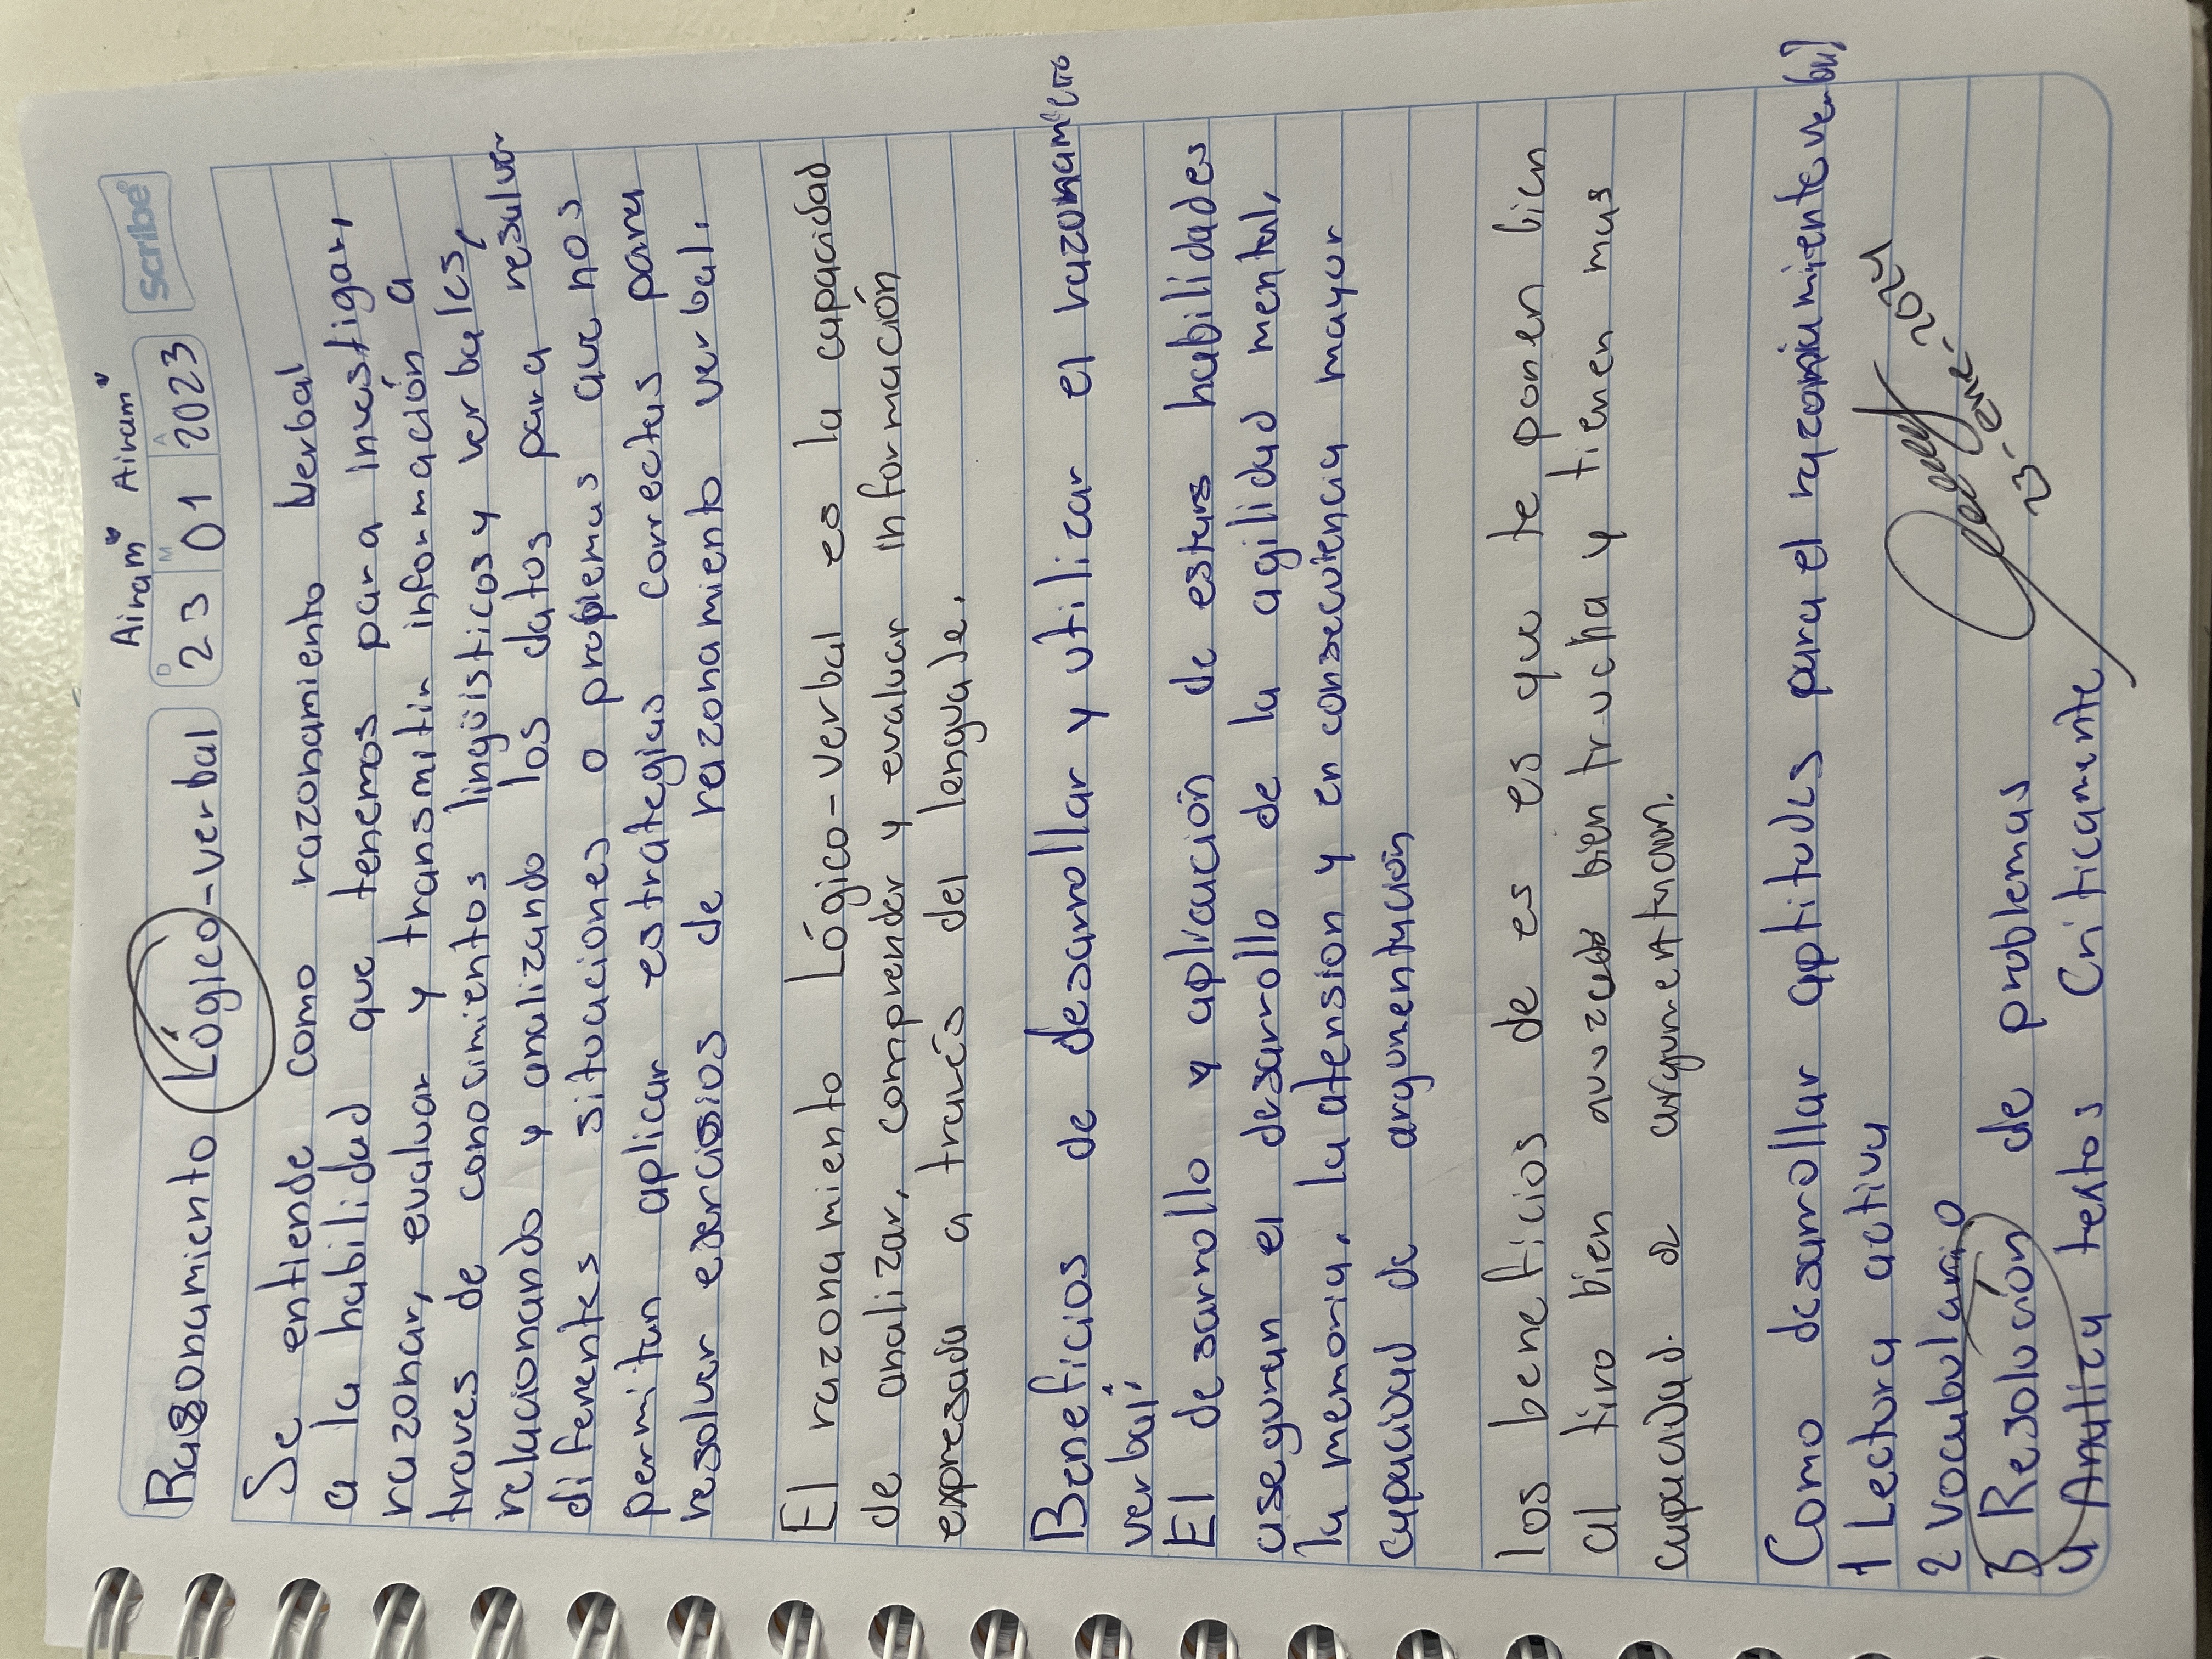 Airam Airam
Rasonamiento Lógico-verbal
D M A
23 01 2023
Scribe®
Se entiende como razonamiento Verbal
a la habilidad que tenemos para investigar,
razonar, evaluar y transmitir información a
traves de conosimientos lingüisticos y verbales,
relacionando y analizando los datos para resolver
diferentes situaciones o problemas que nos
permitan aplicar estrategias correctas para
resolver ejercisios de razonamiento verbal.
El razonamiento Lógico-verbal es la capacidad
de analizar, comprender y evaluar información
expresada a través del lenguaje.
Beneficios de desarrollar y utilicar el razonamiento
verbal.
El desarrollo y aplicación de estas habilidades
aseguran el desarrollo de la agilidad mental,
la memoria, la atension y en consecuencia mayor
capacidad de argumentación
los beneficios de es es que te ponen bien
al tiro bien bien trucha y tienen mas
capacidad. de argumentacion.
Como desarrollar aptitudes para el razonamiento verbal
1 Lectura activa
2 vocabulario
3 Resolución de problemas
4 Analiza textos Criticamente
23-ene-2024